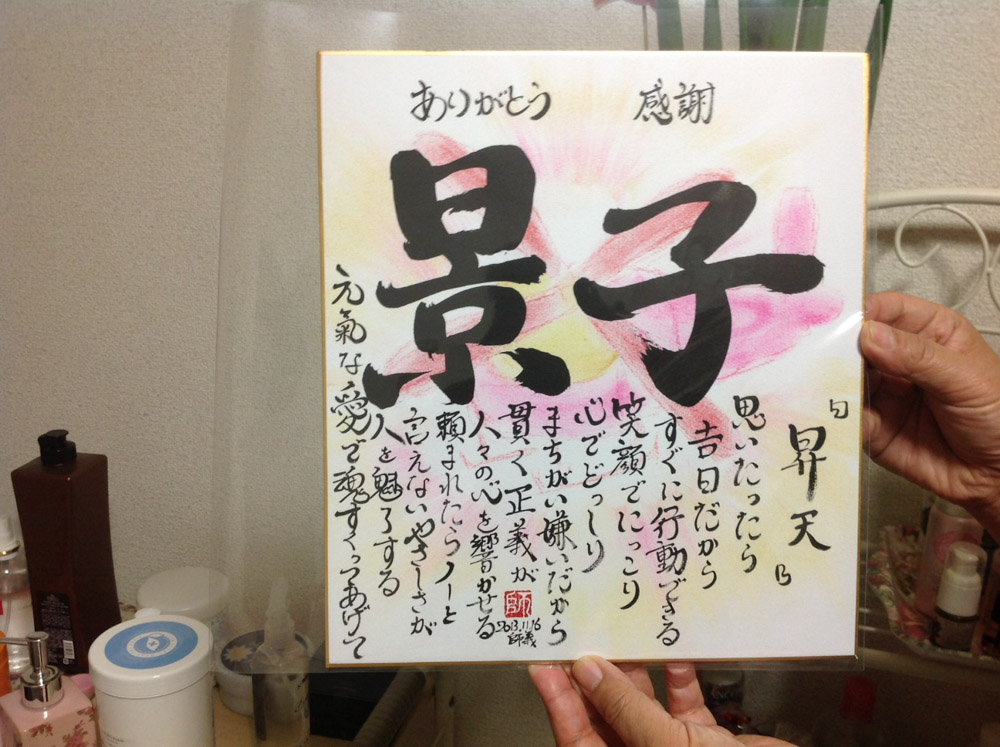 ありがとう 感謝
景子
『昇天』
思いたったら
吉日だから
すぐに行動できる
笑顔でにっこり
心でどっしり
まちがい嫌いだから
貫く正義が
人々の心を響かせる
頼まれたらノーと
言えないやさしさが
人を魅了する
元氣な愛で魂すくってあげて
師
2013.11.16
師義